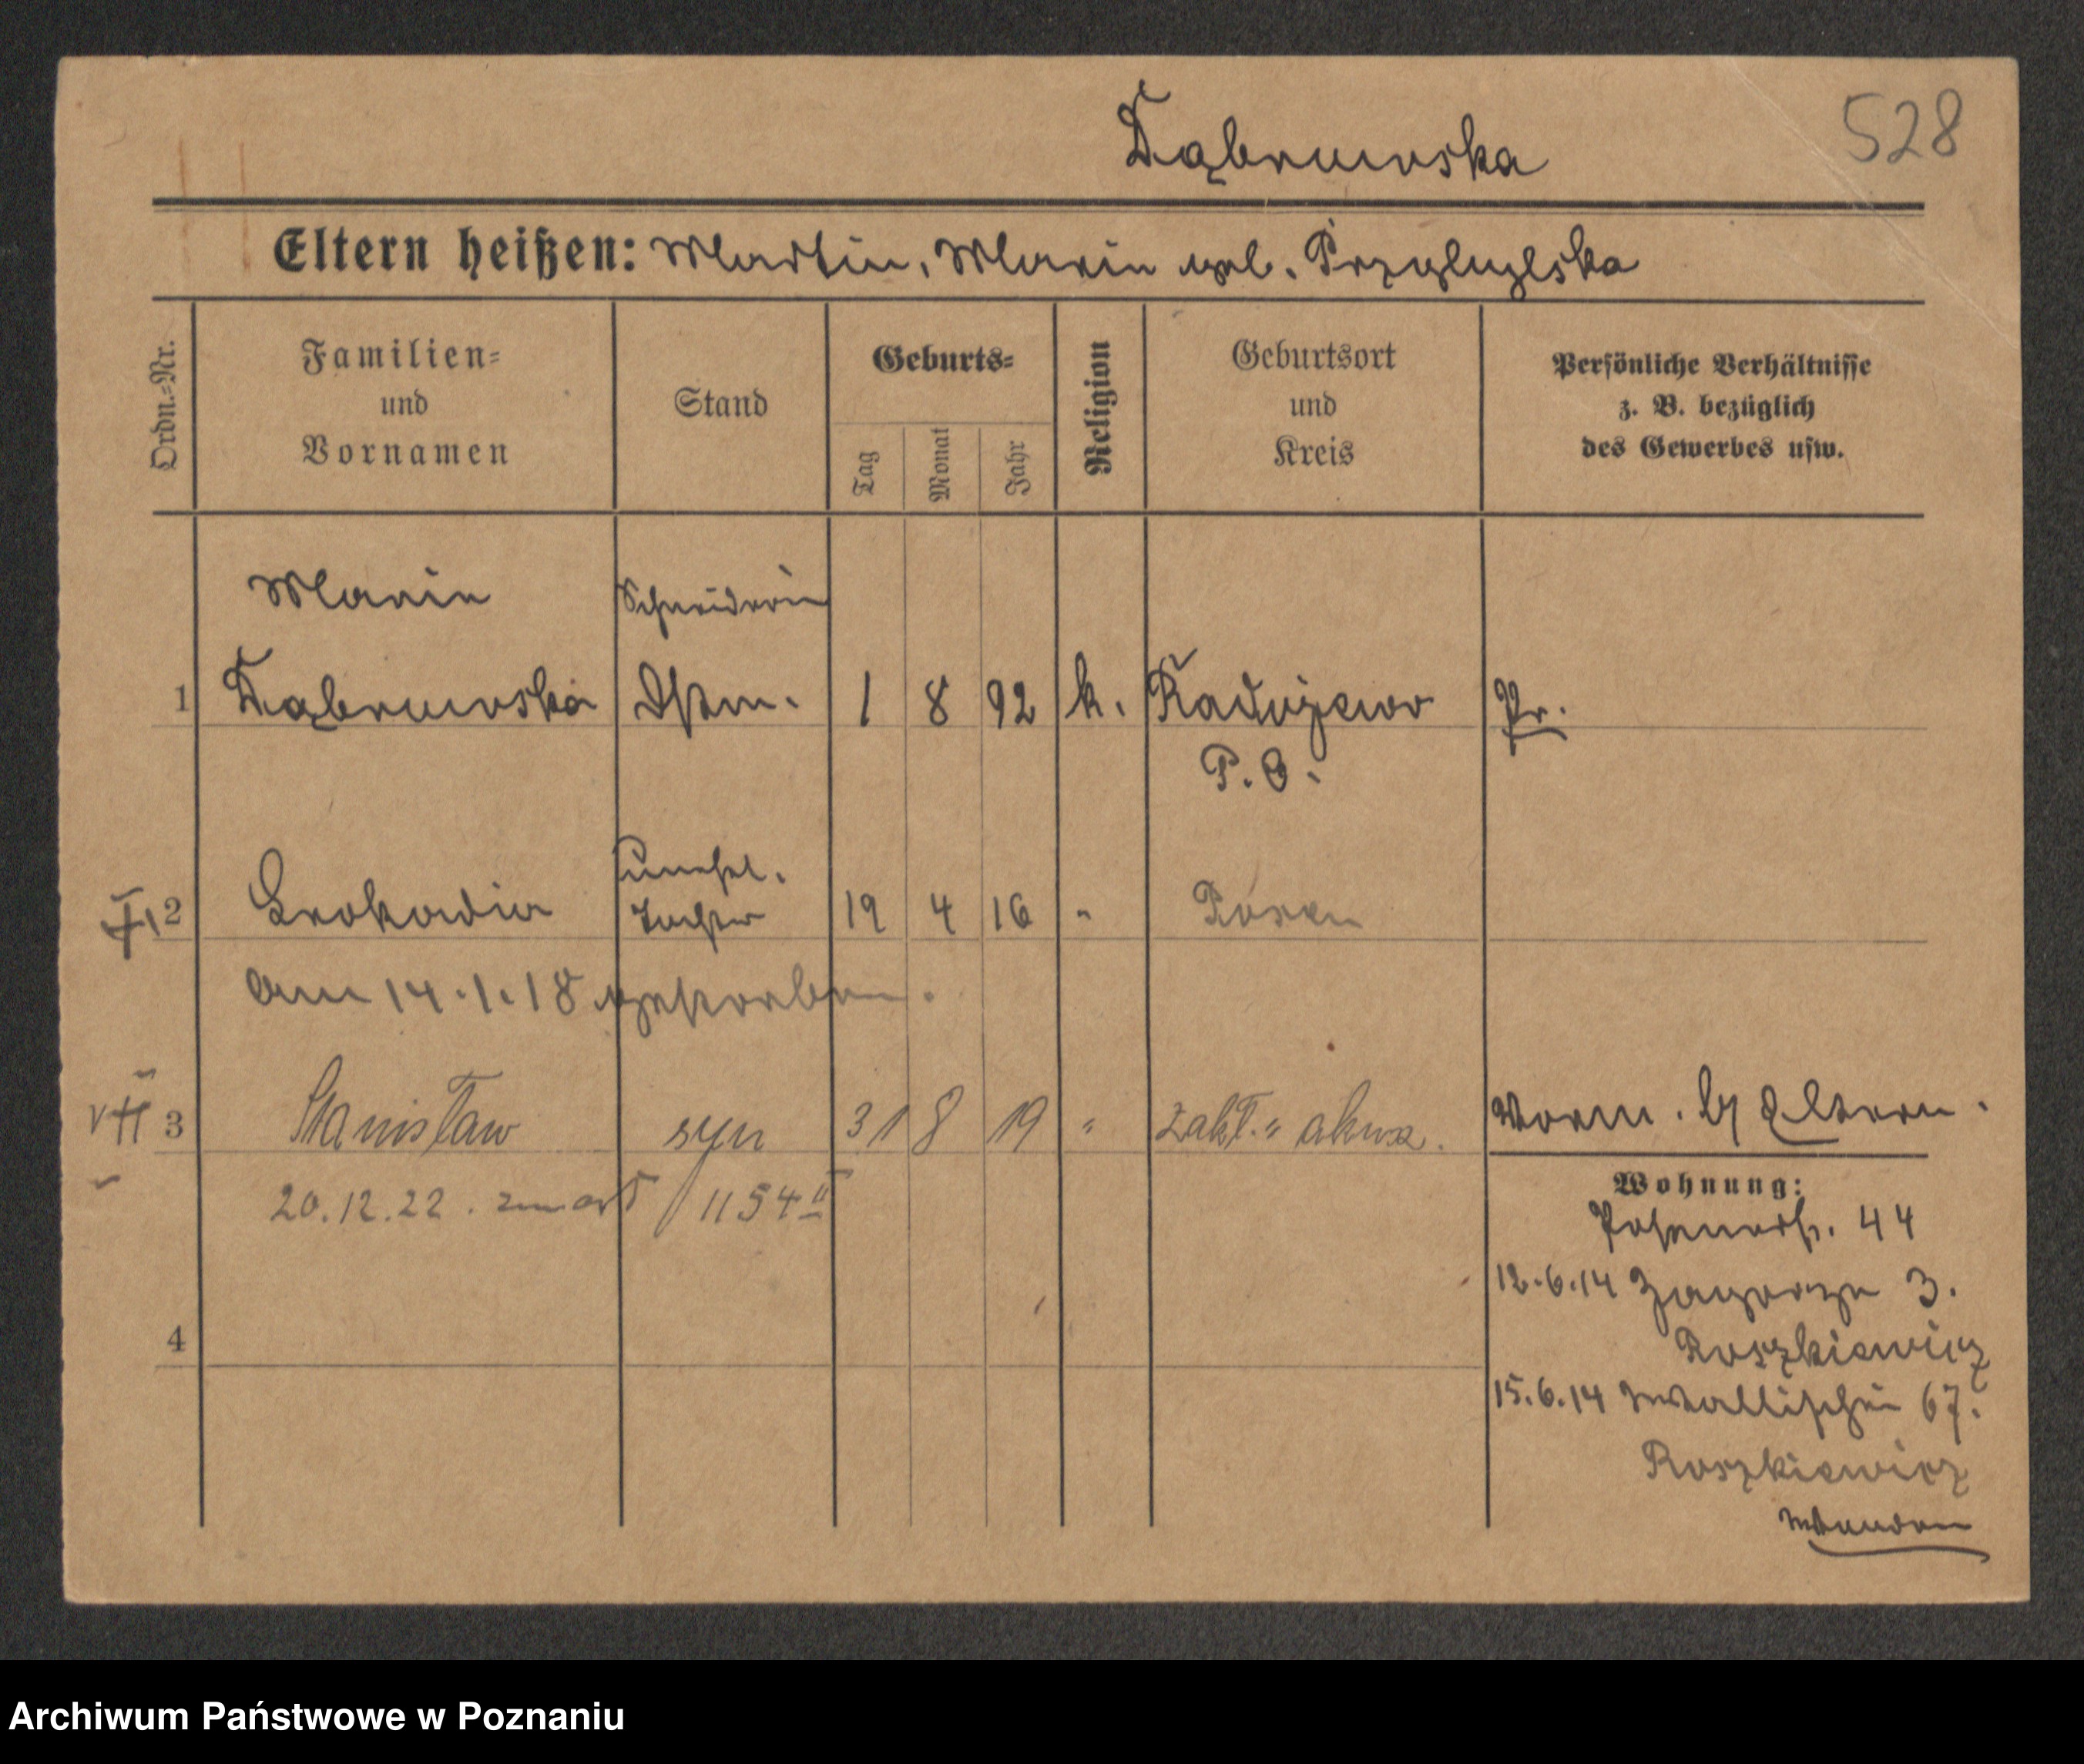 Dąbrowska
528
Eltern heißen: Martin, Marie geb. Przybylska
Ordn.=Nr.
Familien=
und
Vornamen
Stand
Geburts=
Tag
Monat
Jahr
Religion
Geburtsort
und
Kreis
Persönliche Verhältnisse
z. B. bezüglich
des Gewerbes usw.
Marie Schneiderin
1 Dąbrowska 1 8 92 k. Radojewo Pr.
P. O.
unehel.
2 Leokadia Tochter 19 4 16 " Posen
am 14.1.18 gestorben.
VII 3 Stanisław syn 31 8 19 " Zakł. " akusz. Vorm. b/ Eltern.
20.12.22. zmarł / 1154 II
Wohnung:
Posenerstr. 44
12.6.14 Zagorze 3.
Roszkiewicz
15.6.14 Wallischei 67.
Roszkiewicz
4
Archiwum Państwowe w Poznaniu